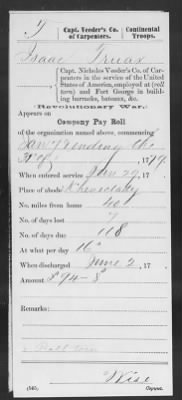 T | Capt. Veeder's Co. of Carpenters. | Continental Troops.
Isaac Truax
Capt. Nicholas Veeder's Co. of Carpenters in the service of the United States of America, employed at (roll torn) and Fort George in building barracks, bateaux, &c.
Revolutionary War.
Appears on
Company Pay Roll
of the organization named above, commencing
Jan'y & ending the
1779.
When entered service Jan 29, 17
Place of abode Schenectady
No. miles from home 40
No. of days lost 7
No. of days due 118
At what per day 16
When discharged June 2, 17
Amount £94-8
Remarks:
Roll torn
(545)
Wise
Copyist.